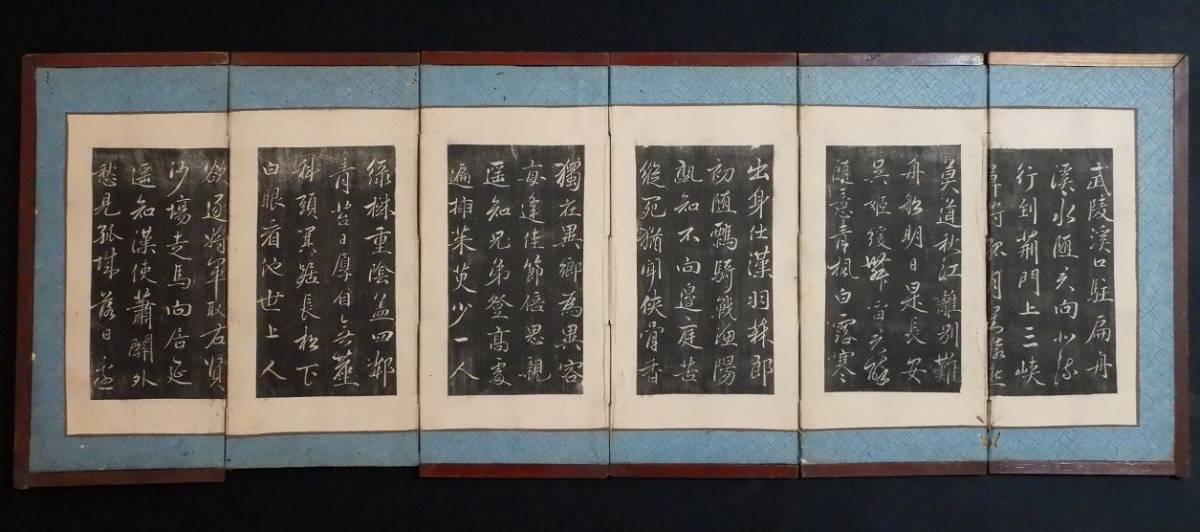 武陵溪口駐扁舟
溪水随君向北流
行到荊門上三峽
莫将孤月對猿愁
莫道秋江離別難
舟船明日是長安
吳姬緩舞留君醉
随意青楓白露寒
出身仕漢羽林郎
初随驃騎戰漁陽
孰知不向邊庭苦
縱死猶聞俠骨香
獨在異鄉為異客
每逢佳節倍思親
遥知兄弟登高處
遍插茱萸少一人
緑樹重陰蓋四鄰
青苔日厚自無塵
科頭箕踞長松下
白眼看他世上人
欲逐將軍取右賢
沙場走馬向居延
遥知漢使蕭關外
愁見孤城落日邊